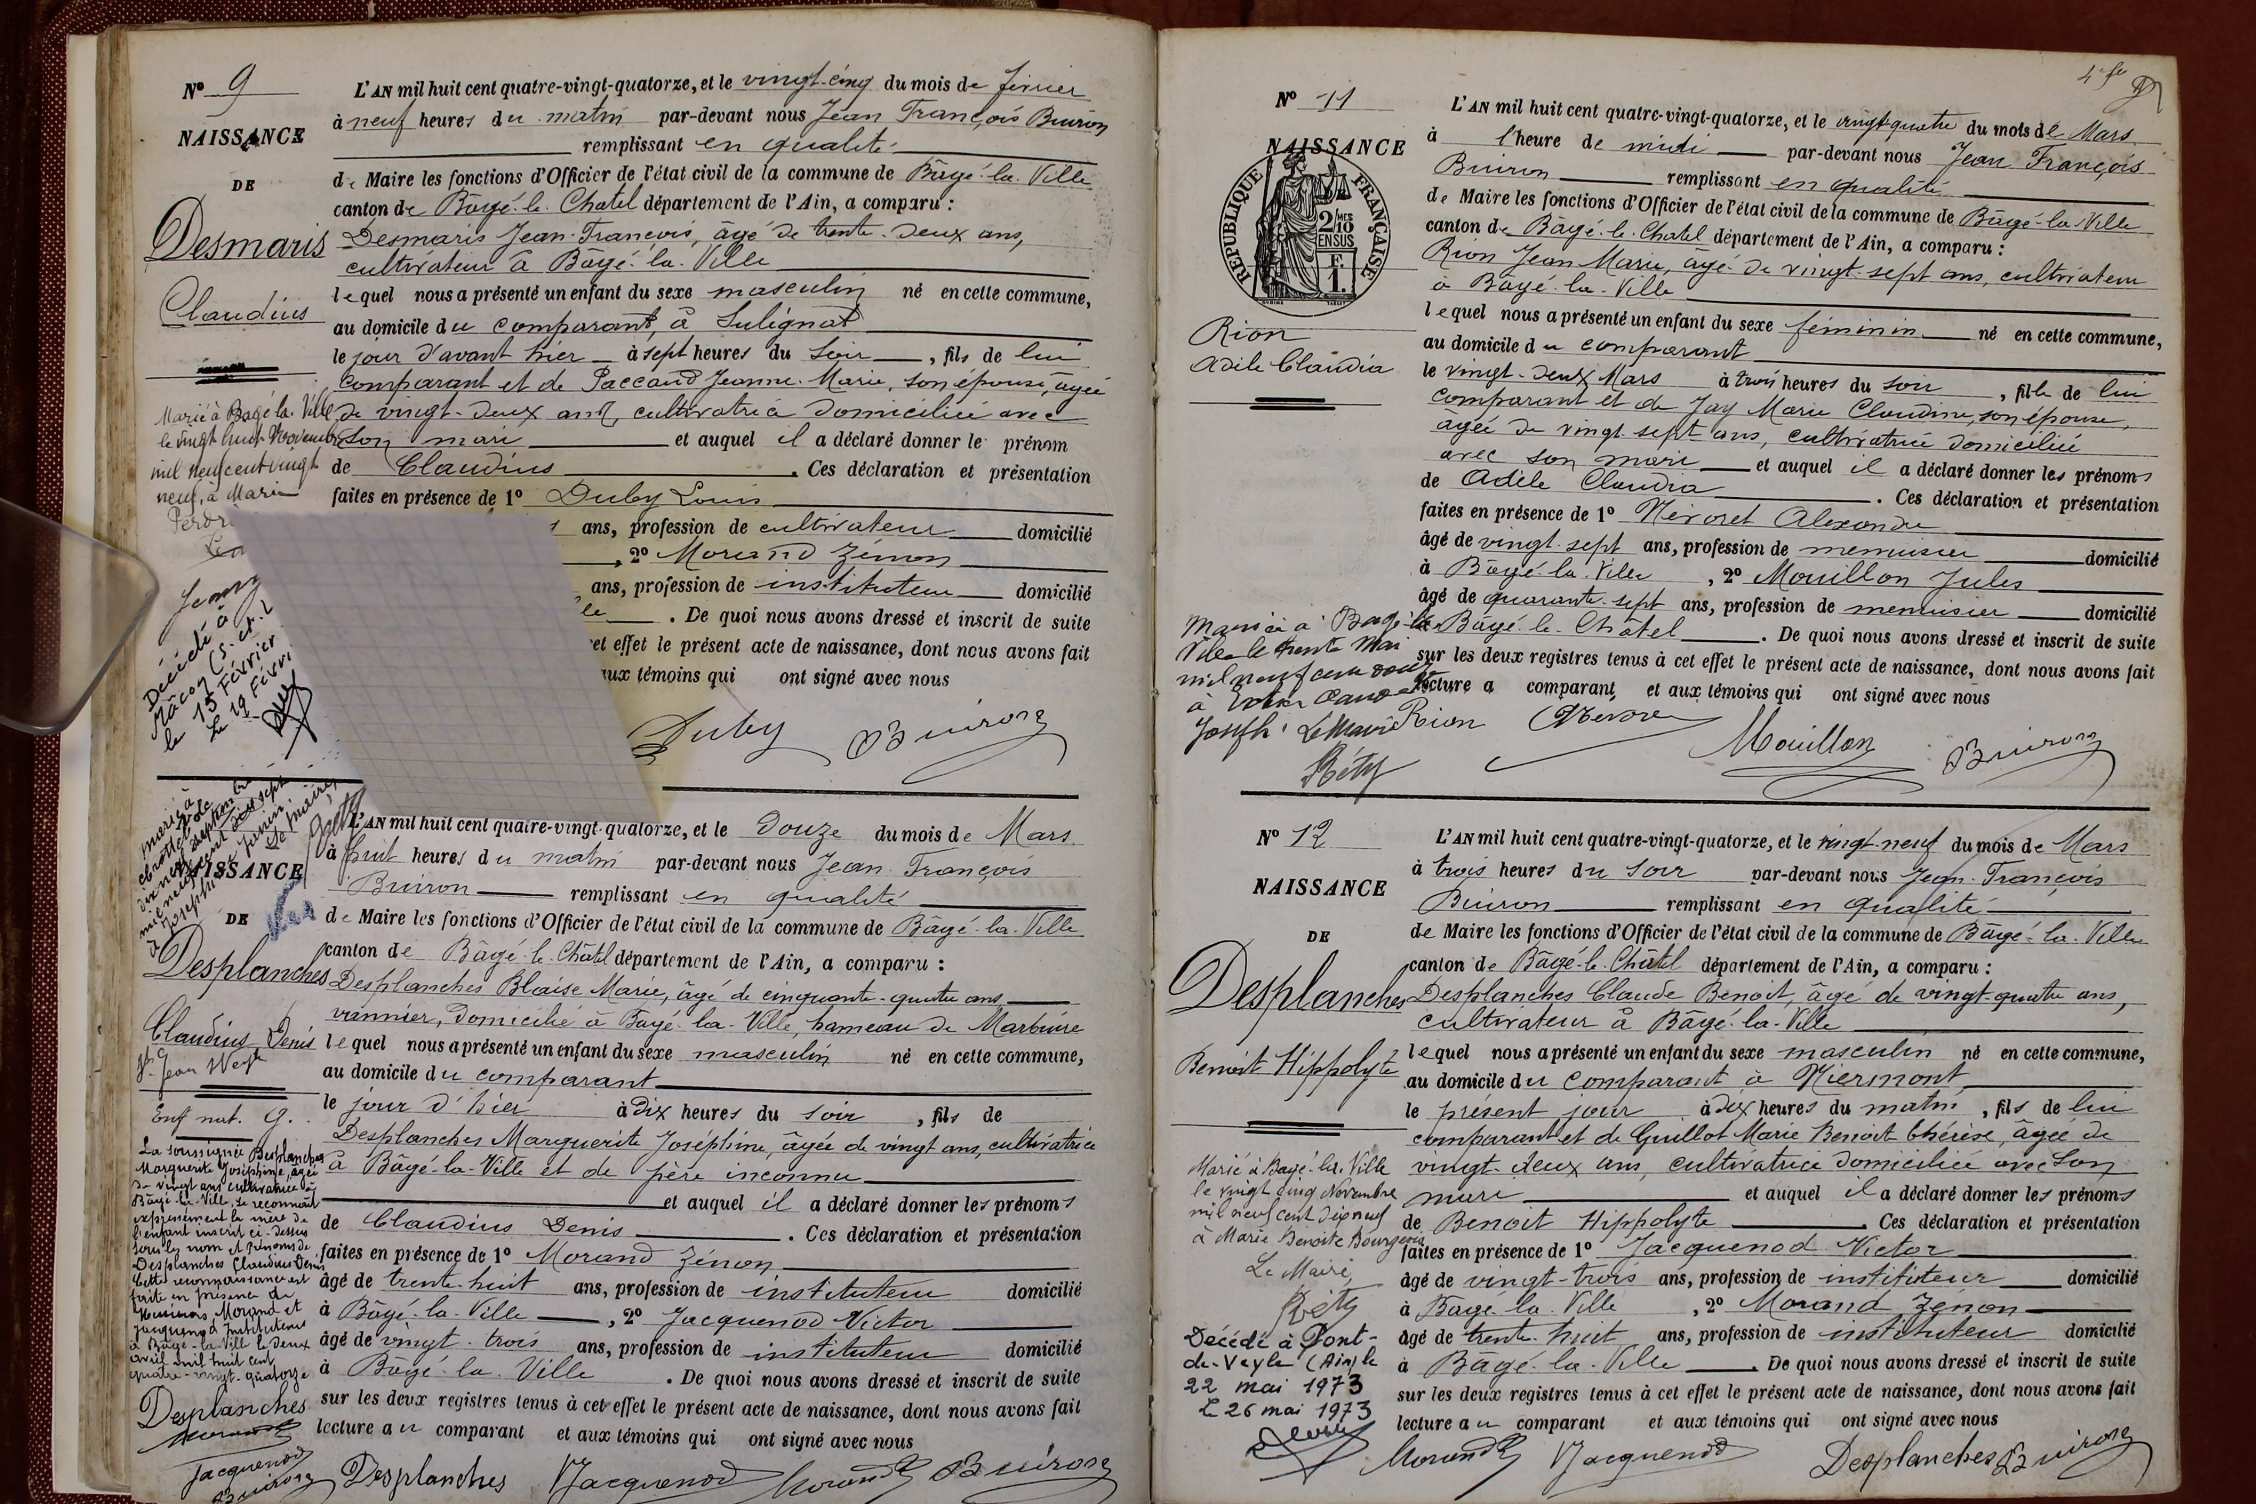 N° 9
NAISSANCE
DE
Desmaris
Claudius
Marié à Bagé-la-Ville
le vingt huit Novembre
mil neuf cent vingt
neuf, à Marie
Décédé à
Mâcon (S. et L
le 15 Février
Le 19 Févri
L'AN mil huit cent quatre-vingt-quatorze, et le vingt-cinq du mois de février
à neuf heures du matin par-devant nous Jean François Buiron
remplissant en qualité
de Maire les fonctions d'Officier de l'état civil de la commune de Bâgé-la-Ville
canton de Bâgé-le-Chatel département de l'Ain, a comparu :
Desmaris Jean-François, âgé de trente-deux ans,
cultivateur à Bagé-la-Ville
lequel nous a présenté un enfant du sexe masculin né en cette commune,
au domicile du comparant, à Sulignat
le jour d'avant hier à sept heures du soir, fils de lui
comparant et de Paccaud Jeanne-Marie, son épouse, âgée
de vingt-deux ans, cultivatrice domiciliée avec
son mari et auquel il a déclaré donner le prénom
de Claudius. Ces déclaration et présentation
faites en présence de 1° Duby Louis
ans, profession de cultivateur domicilié
, 2° Morand Zénon
ans, profession de instituteur domicilié
. De quoi nous avons dressé et inscrit de suite
cet effet le présent acte de naissance, dont nous avons fait
aux témoins qui ont signé avec nous
Duby Buiron
DE
Desplanches
Claudius Denis
Enf nat. G.
La soussignée Desplanches
Marguerite Joséphine, âgée
de vingt ans cultivatrice à
Bâgé-la-Ville, se reconnaît
expressément la mère de
l'enfant inscrit ci-dessus
sous les nom et prénoms de
Desplanches Claudius Denis
Cette reconnaissance est
faite en présence de
Messieurs Morand et
Jacquenod Instituteurs
à Bâgé-la-Ville le deux
avril mil huit cent
quatre-vingt-quatorze
Desplanches
Morand
Jacquenod
Buiron
L'AN mil huit cent quatre-vingt-quatorze, et le douze du mois de Mars
à huit heures du matin par-devant nous Jean François
Buiron remplissant en qualité
de Maire les fonctions d'Officier de l'état civil de la commune de Bâgé-la-Ville
canton de Bâgé-le-Châtel département de l'Ain, a comparu :
Desplanches Blaise Marie, âgé de cinquante-quatre ans
vannier, domicilié à Bagé-la-Ville, hameau de
lequel nous a présenté un enfant du sexe masculin né en cette commune,
au domicile du comparant
le jour d'hier à dix heures du soir, fils de
Desplanches Marguerite Joséphine, âgée de vingt ans, cultivatrice
à Bâgé-la-Ville et de père inconnu
et auquel il a déclaré donner les prénoms
de Claudius Denis. Ces déclaration et présentation
faites en présence de 1° Morand Zénon
âgé de trente-huit ans, profession de instituteur domicilié
à Bâgé-la-Ville, 2° Jacquenod Victor
âgé de vingt-trois ans, profession de instituteur domicilié
à Bagé-la-Ville. De quoi nous avons dressé et inscrit de suite
sur les deux registres tenus à cet effet le présent acte de naissance, dont nous avons fait
lecture au comparant et aux témoins qui ont signé avec nous
Desplanches VJacquenod Morand Buiron
N° 11
NAISSANCE
RÉPUBLIQUE FRANÇAISE
2/10
EN SUS
F.
1.
Rion
Adèle Claudia
Mariée à Bagé-la-
Ville le trente Mai
Joseph. Le Maire
Réty
L'AN mil huit cent quatre-vingt-quatorze, et le vingt-quatre du mois de Mars
à l'heure de midi par-devant nous Jean François
Buiron remplissant en qualité
de Maire les fonctions d'Officier de l'état civil de la commune de Bâgé-la-Ville
canton de Bâgé-le-Chatel département de l'Ain, a comparu :
Rion Jean Marie, âgé de vingt-sept ans, cultivateur
à Bâgé-la-Ville
lequel nous a présenté un enfant du sexe féminin né en cette commune,
au domicile du comparant
le vingt-deux Mars à trois heures du soir, fille de lui
comparant et de Jay Marie Claudine, son épouse,
âgée de vingt-sept ans, cultivatrice domiciliée
avec son mari et auquel il a déclaré donner les prénoms
de Adèle Claudia. Ces déclaration et présentation
faites en présence de 1° Névoret Alexandre
âgé de vingt-sept ans, profession de menuisier domicilié
à Bâgé-la-Ville, 2° Mouillon Jules
âgé de quarante-sept ans, profession de menuisier domicilié
à Bâgé-le-Châtel. De quoi nous avons dressé et inscrit de suite
sur les deux registres tenus à cet effet le présent acte de naissance, dont nous avons fait
lecture a comparant et aux témoins qui ont signé avec nous
Rion Mouillon Buiron
N° 12
NAISSANCE
DE
Desplanches
Benoit Hippolyte
Marié à Bagé-la-Ville
le vingt cinq Novembre
mil neuf cent dix neuf
à Marie Benoite Bourgeois
Le Maire,
Réty
Décédé à Pont-
de-Veyle (Ain) le
22 mai 1973
Le 26 mai 1973
L'AN mil huit cent quatre-vingt-quatorze, et le vingt-neuf du mois de Mars
à trois heures du soir par-devant nous Jean-François
Buiron remplissant en qualité
de Maire les fonctions d'Officier de l'état civil de la commune de Bâgé-la-Ville
canton de Bâgé-le-Châtel département de l'Ain, a comparu :
Desplanches Claude Benoit, âgé de vingt-quatre ans,
cultivateur à Bâgé-la-Ville
lequel nous a présenté un enfant du sexe masculin né en cette commune,
au domicile du comparant à Niermont
le présent jour à dix heures du matin, fils de lui
comparant et de Guillot Marie Benoit Thérèse, âgée de
vingt-deux ans, cultivatrice domiciliée avec son
mari et auquel il a déclaré donner les prénoms
de Benoit Hippolyte. Ces déclaration et présentation
faites en présence de 1° Jacquenod Victor
âgé de vingt-trois ans, profession de instituteur domicilié
à Bagé-la-Ville, 2° Morand Zénon
âgé de trente-huit ans, profession de instituteur domicilié
à Bâgé-la-Ville. De quoi nous avons dressé et inscrit de suite
sur les deux registres tenus à cet effet le présent acte de naissance, dont nous avons fait
lecture au comparant et aux témoins qui ont signé avec nous
Morand VJacquenod Desplanches Buiron